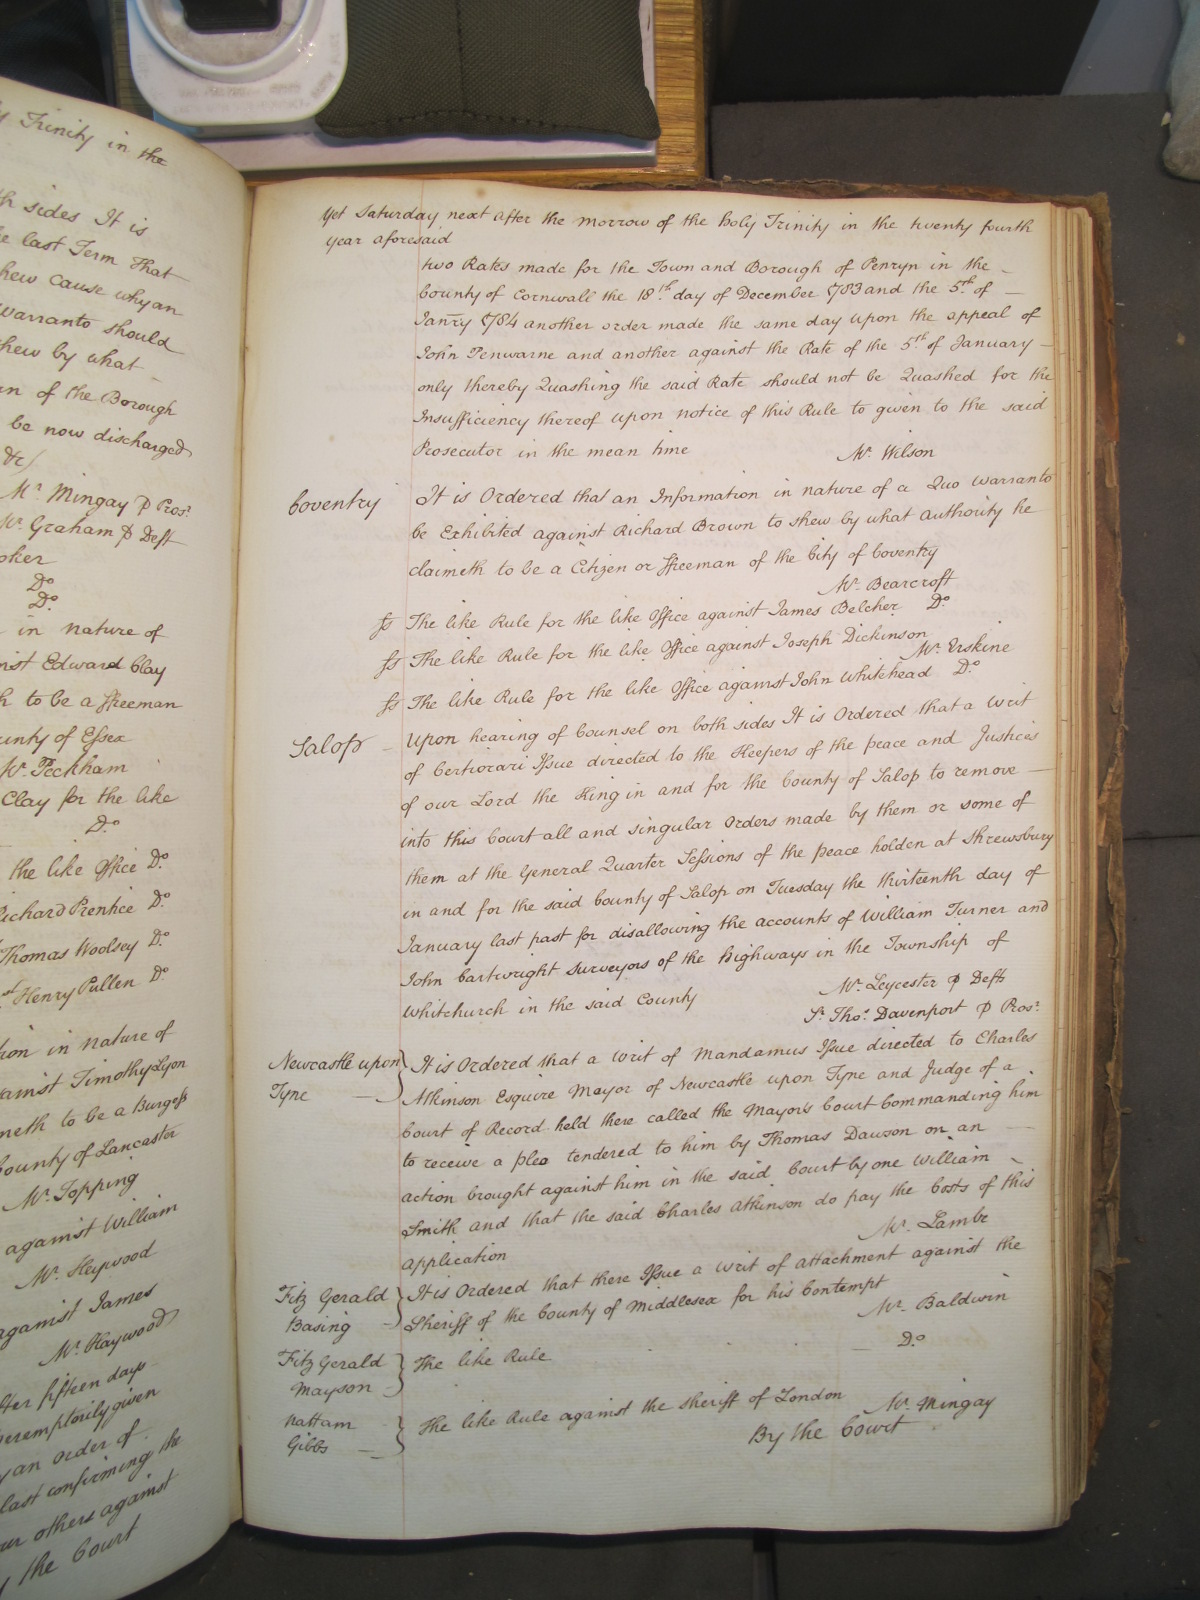 y Trinity in the
th sides It is
e last Term that
hew cause why an
Warranto should
hew by what
an of the Borough
be now discharged
&c/
Mr. Mingay p Prosr.
Mr. Graham p Deft
oker
Do.
Do.
in nature of
nst Edward Clay
h to be a ffreeman
unty of Essex
Mr. Peckham
Clay for the like
Do.
the like Office Do.
Richard Prentice Do.
Thomas Woolsey Do.
st Henry Pullen Do.
tion in nature of
gainst Timothy Lyon
meth to be a Burgess
County of Lancaster
Mr. Topping
against William
Mr. Heywood
against James
Mr. Haywood
fter fifteen days
peremptorily given
y an order of
last confirming the
our others against
y the Court
Yet Saturday next after the morrow of the Holy Trinity in the twenty fourth
year aforesaid
two Rates made for the Town and Borough of Penryn in the
County of Cornwall the 18th. day of December 1783 and the 5th. of
Janry 1784 another order made the same day upon the appeal of
John Penwarne and another against the Rate of the 5th. of January
only thereby Quashing the said Rate should not be Quashed for the
Insufficiency thereof upon notice of this Rule to given to the said
Prosecutor in the mean time Mr. Wilson
Coventry It is Ordered that an Information in nature of a Quo Warranto
be Exhibited against Richard Brown to shew by what Authority he
claimeth to be a Citizen or ffreeman of the City of Coventry
Mr. Bearcroft
fs The like Rule for the like Office against James Belcher Do.
fs The like Rule for the like Office against Joseph Dickinson
Mr. Erskine
fs The like Rule for the like Office against John Whitehead Do.
Salop Upon hearing of Counsel on both sides It is Ordered that a Writ
of Certiorari Issue directed to the Keepers of the peace and Justices
of our Lord the King in and for the County of Salop to remove
into this Court all and singular Orders made by them or some of
them at the General Quarter Sessions of the peace holden at Shrewsbury
in and for the said County of Salop on Tuesday the thirteenth day of
January last past for disallowing the accounts of William Turner and
John Cartwright Surveyors of the Highways in the Township of
Whitchurch in the said County Mr. Leycester p Defts
Sr. Thos. Davenport p Prosr.
Newcastle upon It is Ordered that a Writ of Mandamus Issue directed to Charles
Tyne Atkinson Esquire Mayor of Newcastle upon Tyne and Judge of a
Court of Record held there called the Mayors Court Commanding him
to receive a plea tendered to him by Thomas Dawson on an
action brought against him in the said Court by one William
Smith and that the said Charles Atkinson do pay the Costs of this
application Mr. Lambe
Fitz Gerald It is Ordered that there Issue a Writ of attachment against the
Basing Sheriff of the County of Middlesex for his Contempt
Mr. Baldwin
Fitz Gerald The like Rule Do.
Mayson
Nattam The like Rule against the sheriff of London Mr. Mingay
Gibbs
By the Court